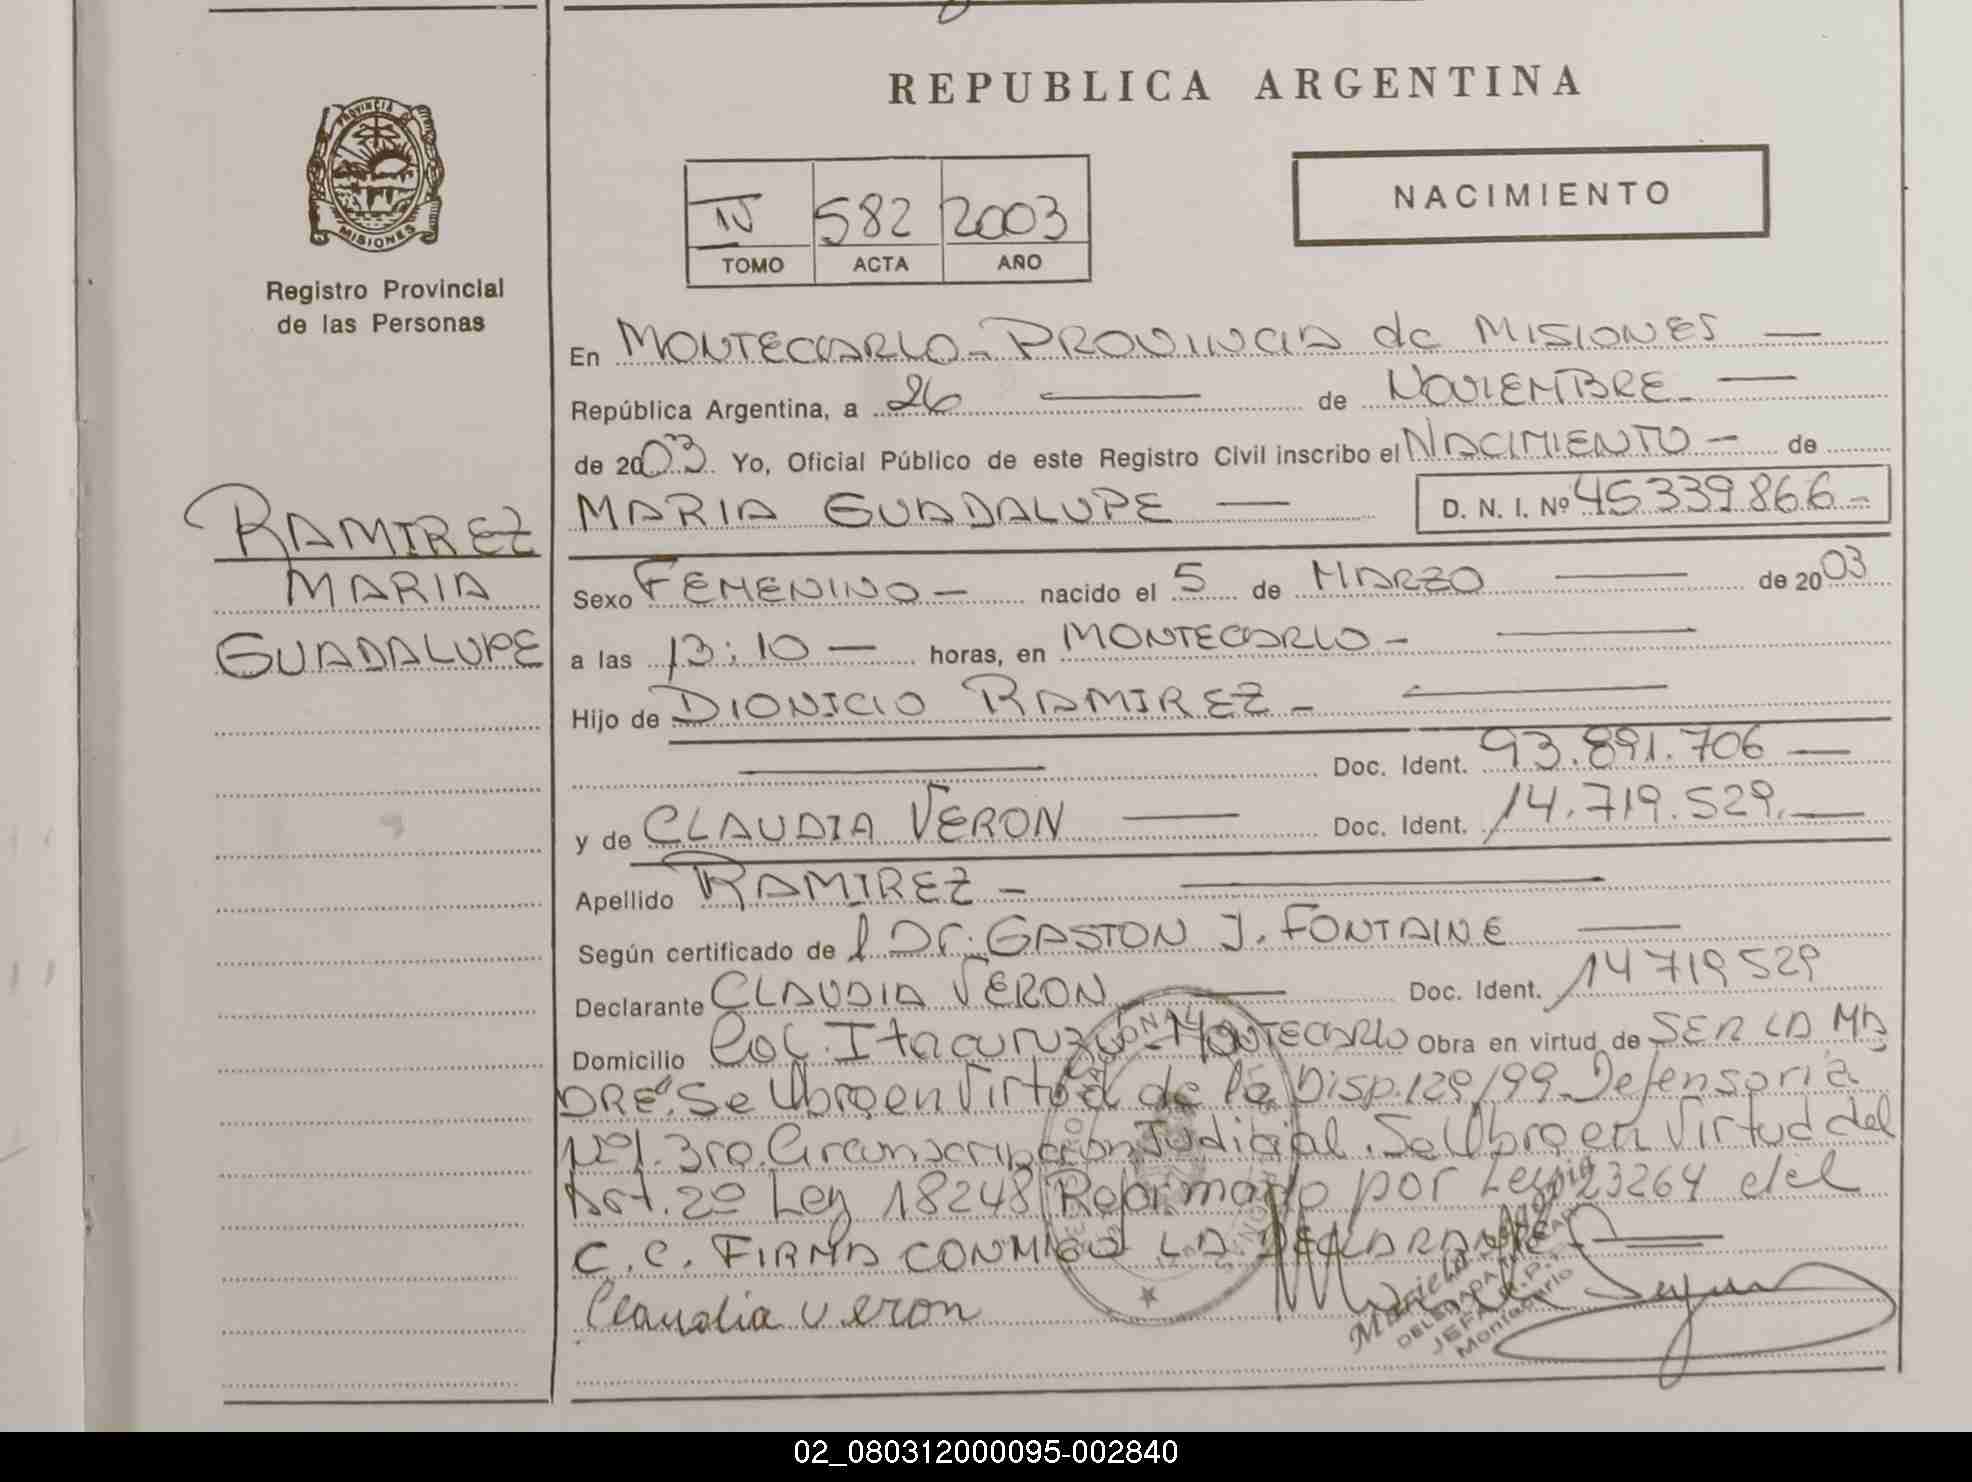 REPUBLICA ARGENTINA
PROVINCIA
MISIONES
Registro Provincial
de las Personas
IV 582 2003
TOMO ACTA AÑO
NACIMIENTO
En MONTECARLO - PROVINCIA de MISIONES —
República Argentina, a 26 — de NOVIEMBRE - —
de 2003 Yo, Oficial Público de este Registro Civil inscribo el NACIMIENTO — de
MARIA GUADALUPE — D. N. I. Nº 45339866 -
RAMIREZ
MARIA
GUADALUPE
Sexo FEMENINO — nacido el 5 de MARZO — de 2003
a las 13:10 — horas, en MONTECARLO - —
Hijo de DIONICIO RAMIREZ - —
— Doc. Ident. 93.891.706 —
y de CLAUDIA VERON — Doc. Ident. 14.719.529. —
Apellido RAMIREZ - —
Según certificado de l Dr. GASTON J. FONTAINE —
Declarante CLAUDIA VERON — Doc. Ident. 14719529
Domicilio Col. Itacuruzu - MONTECARLO Obra en virtud de SER LA MA
DRE". Se Labro en Virtud de la Disp. 129/99 - Defensoria
Nº1. 3ro. Circunscripción Judicial. Se Labro en Virtud del
Art. 2º Ley 18248 Reformado por Ley 23264 del
C.C. FIRMA CONMIGO LA DECLARANTE —
Claudia veron
Montecarlo
02_080312000095-002840